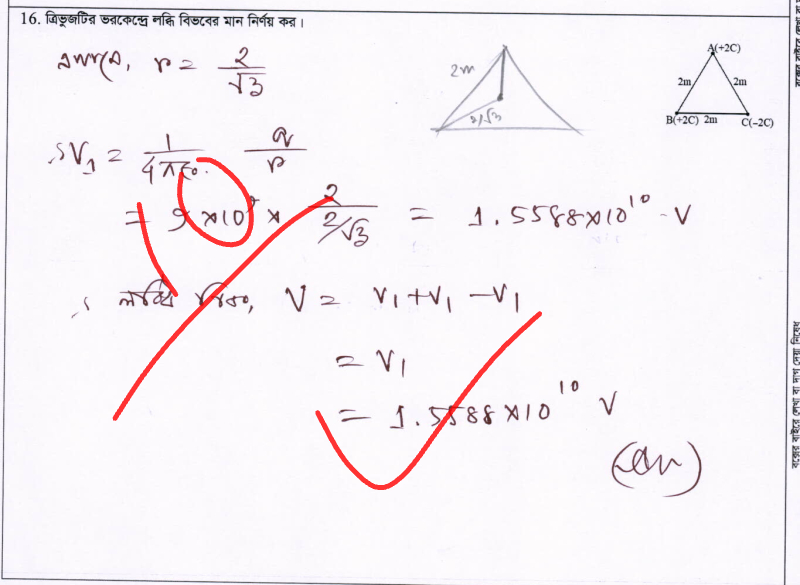 16. ত্রিভুজটির ভরকেন্দ্রে লব্ধি বিভবের মান নির্ণয় কর।
এখানে, r = 2/√3
2m
2/√3
A(+2C)
2m 2m
B(+2C) 2m C(−2C)
∴V₁ = 1/4πε₀ · q/r
= 9 ×10⁹ × 2/2/√3 = 1.5588×10¹⁰ V
∴ লব্ধি বিভব, V = V₁ + V₁ − V₁
= V₁
= 1.5588×10¹⁰ V
(Ans)